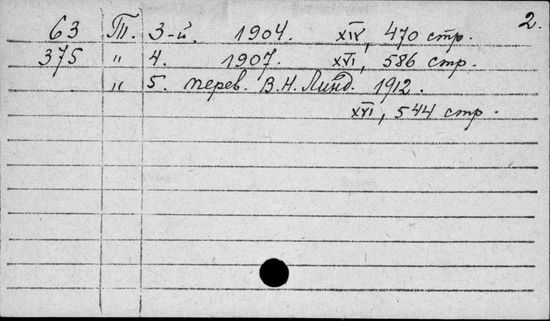 2.
63 Т. 3-й. 1904. XIV, 470 стр.
375 " 4. 1907. XVI, 586 стр.
" 5. перев. В.Н. Линд. 1912.
XVI, 544 стр.